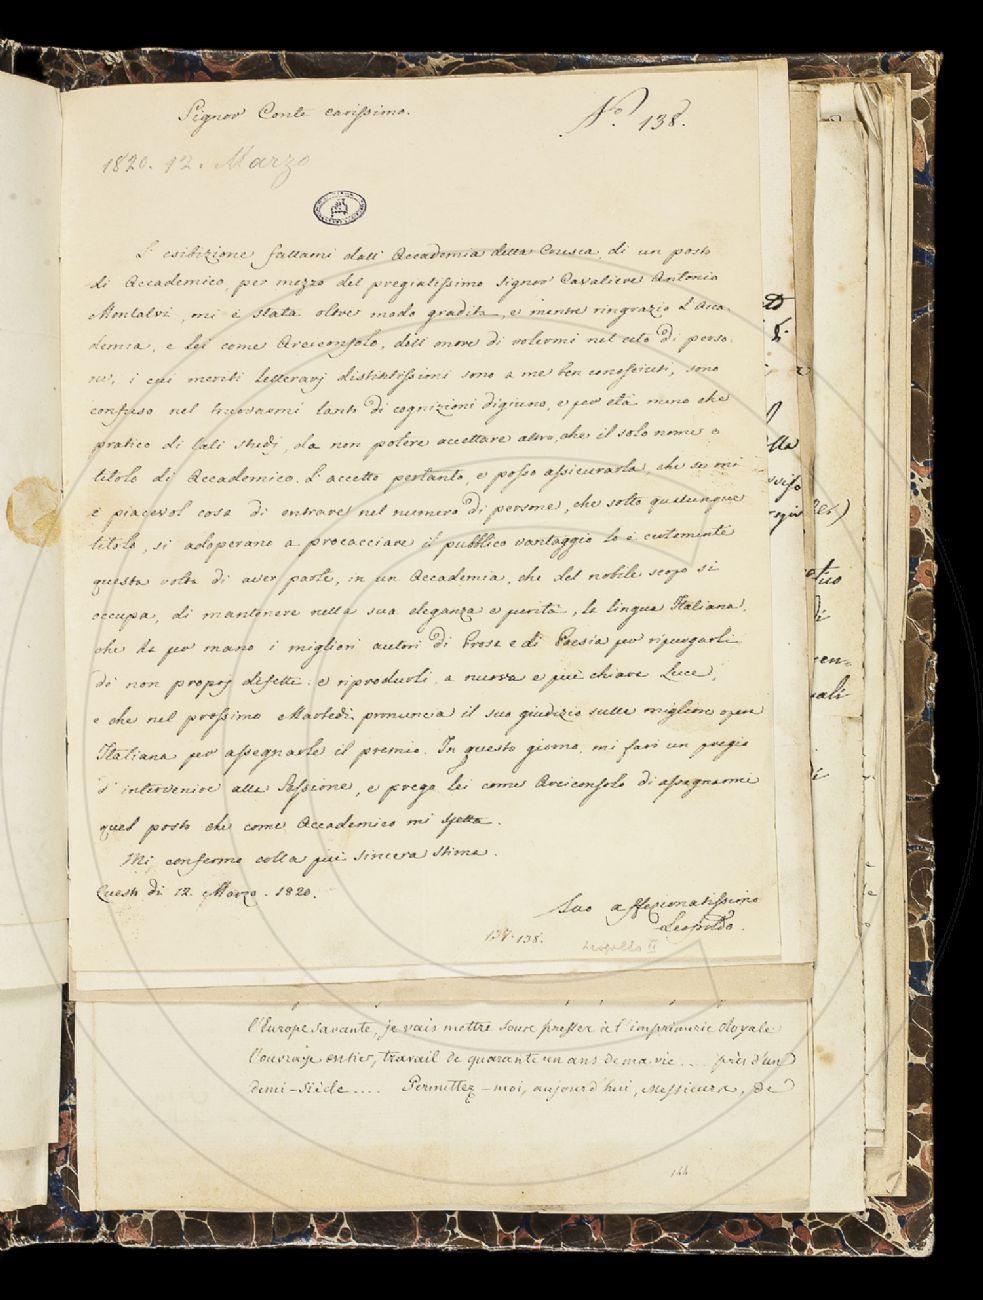 Signor Conte carissimo.
N.º 138.
1820. 12. Marzo
L'esibizione fattami dall'Accademia della Crusca di un posto
di Accademico, per mezzo del pregiatissimo Signor Cavaliere Antonio
Montalvi, mi è stata oltre modo gradita, e mentre ringrazio l'Acca-
demia, e Lei come Arciconsolo, dell'onore di volermi nel ceto di perso-
ne, i cui meriti letterarj distintissimi sono a me ben conosciuti, sono
confuso nel trovarmi tanto di cognizioni digiuno, e per età meno che
pratico di tali studj, da non potere accettare altro, che il solo nome o
titolo di Accademico. L'accetto pertanto, e posso assicurarla, che se mi
è piacevol cosa di entrare nel numero di persone, che sotto qualunque
titolo, si adoperano a procacciare il pubblico vantaggio lo è certamente
questa volta di aver parte, in un Accademia, che del nobile scopo si
occupa, di mantenere nella sua eleganza e purità, la lingua Italiana,
che ha per mano i migliori autori di Prosa e di Poesia per ripurgarli
di non proprj difetti e riprodurli a nuova e più chiara Luce,
e che nel prossimo Martedì pronuncia il suo giudizio sulla migliore opera
Italiana per assegnarle il premio. In questo giorno mi farò un pregio
d'intervenire alla Sessione, e prego Lei come Arciconsolo di assegnarmi
quel posto che come Accademico mi spetta.
Mi confermo colla più sincera stima.
Questo dì 12. Marzo. 1820.
Suo affezionatissimo
Leopoldo.
138.
Leopoldo II
l'Europe savante, je vais mettre sous presser à l'imprimerie Royale
l'ouvrage entier, travail de quarante un ans de ma vie .... près d'un
demi-Siècle .... Permettez-moi, aujourd'hui, Messieurs, de
144